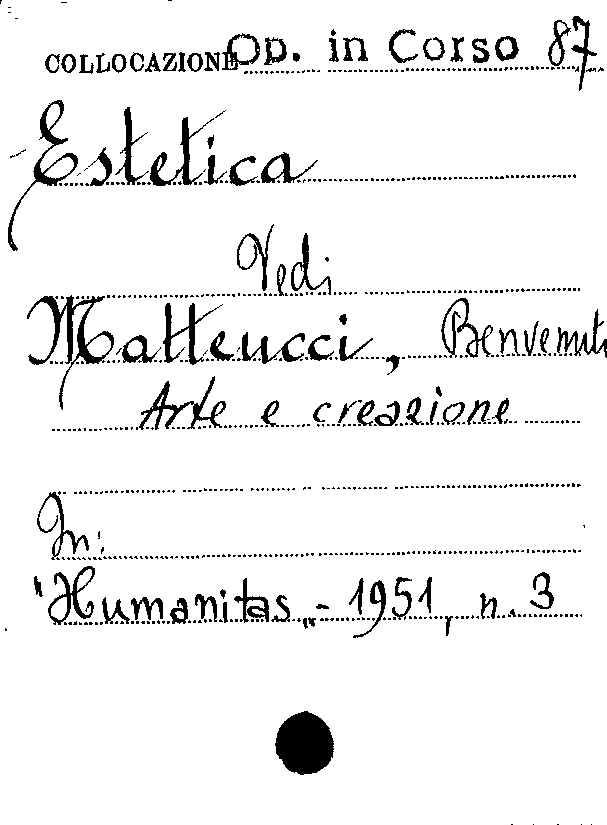 COLLOCAZIONE Op. in Corso 87
Estetica
Vedi
Matteucci, Benvenuti
Arte e creazione
In:
"Humanitas„ - 1951, n. 3